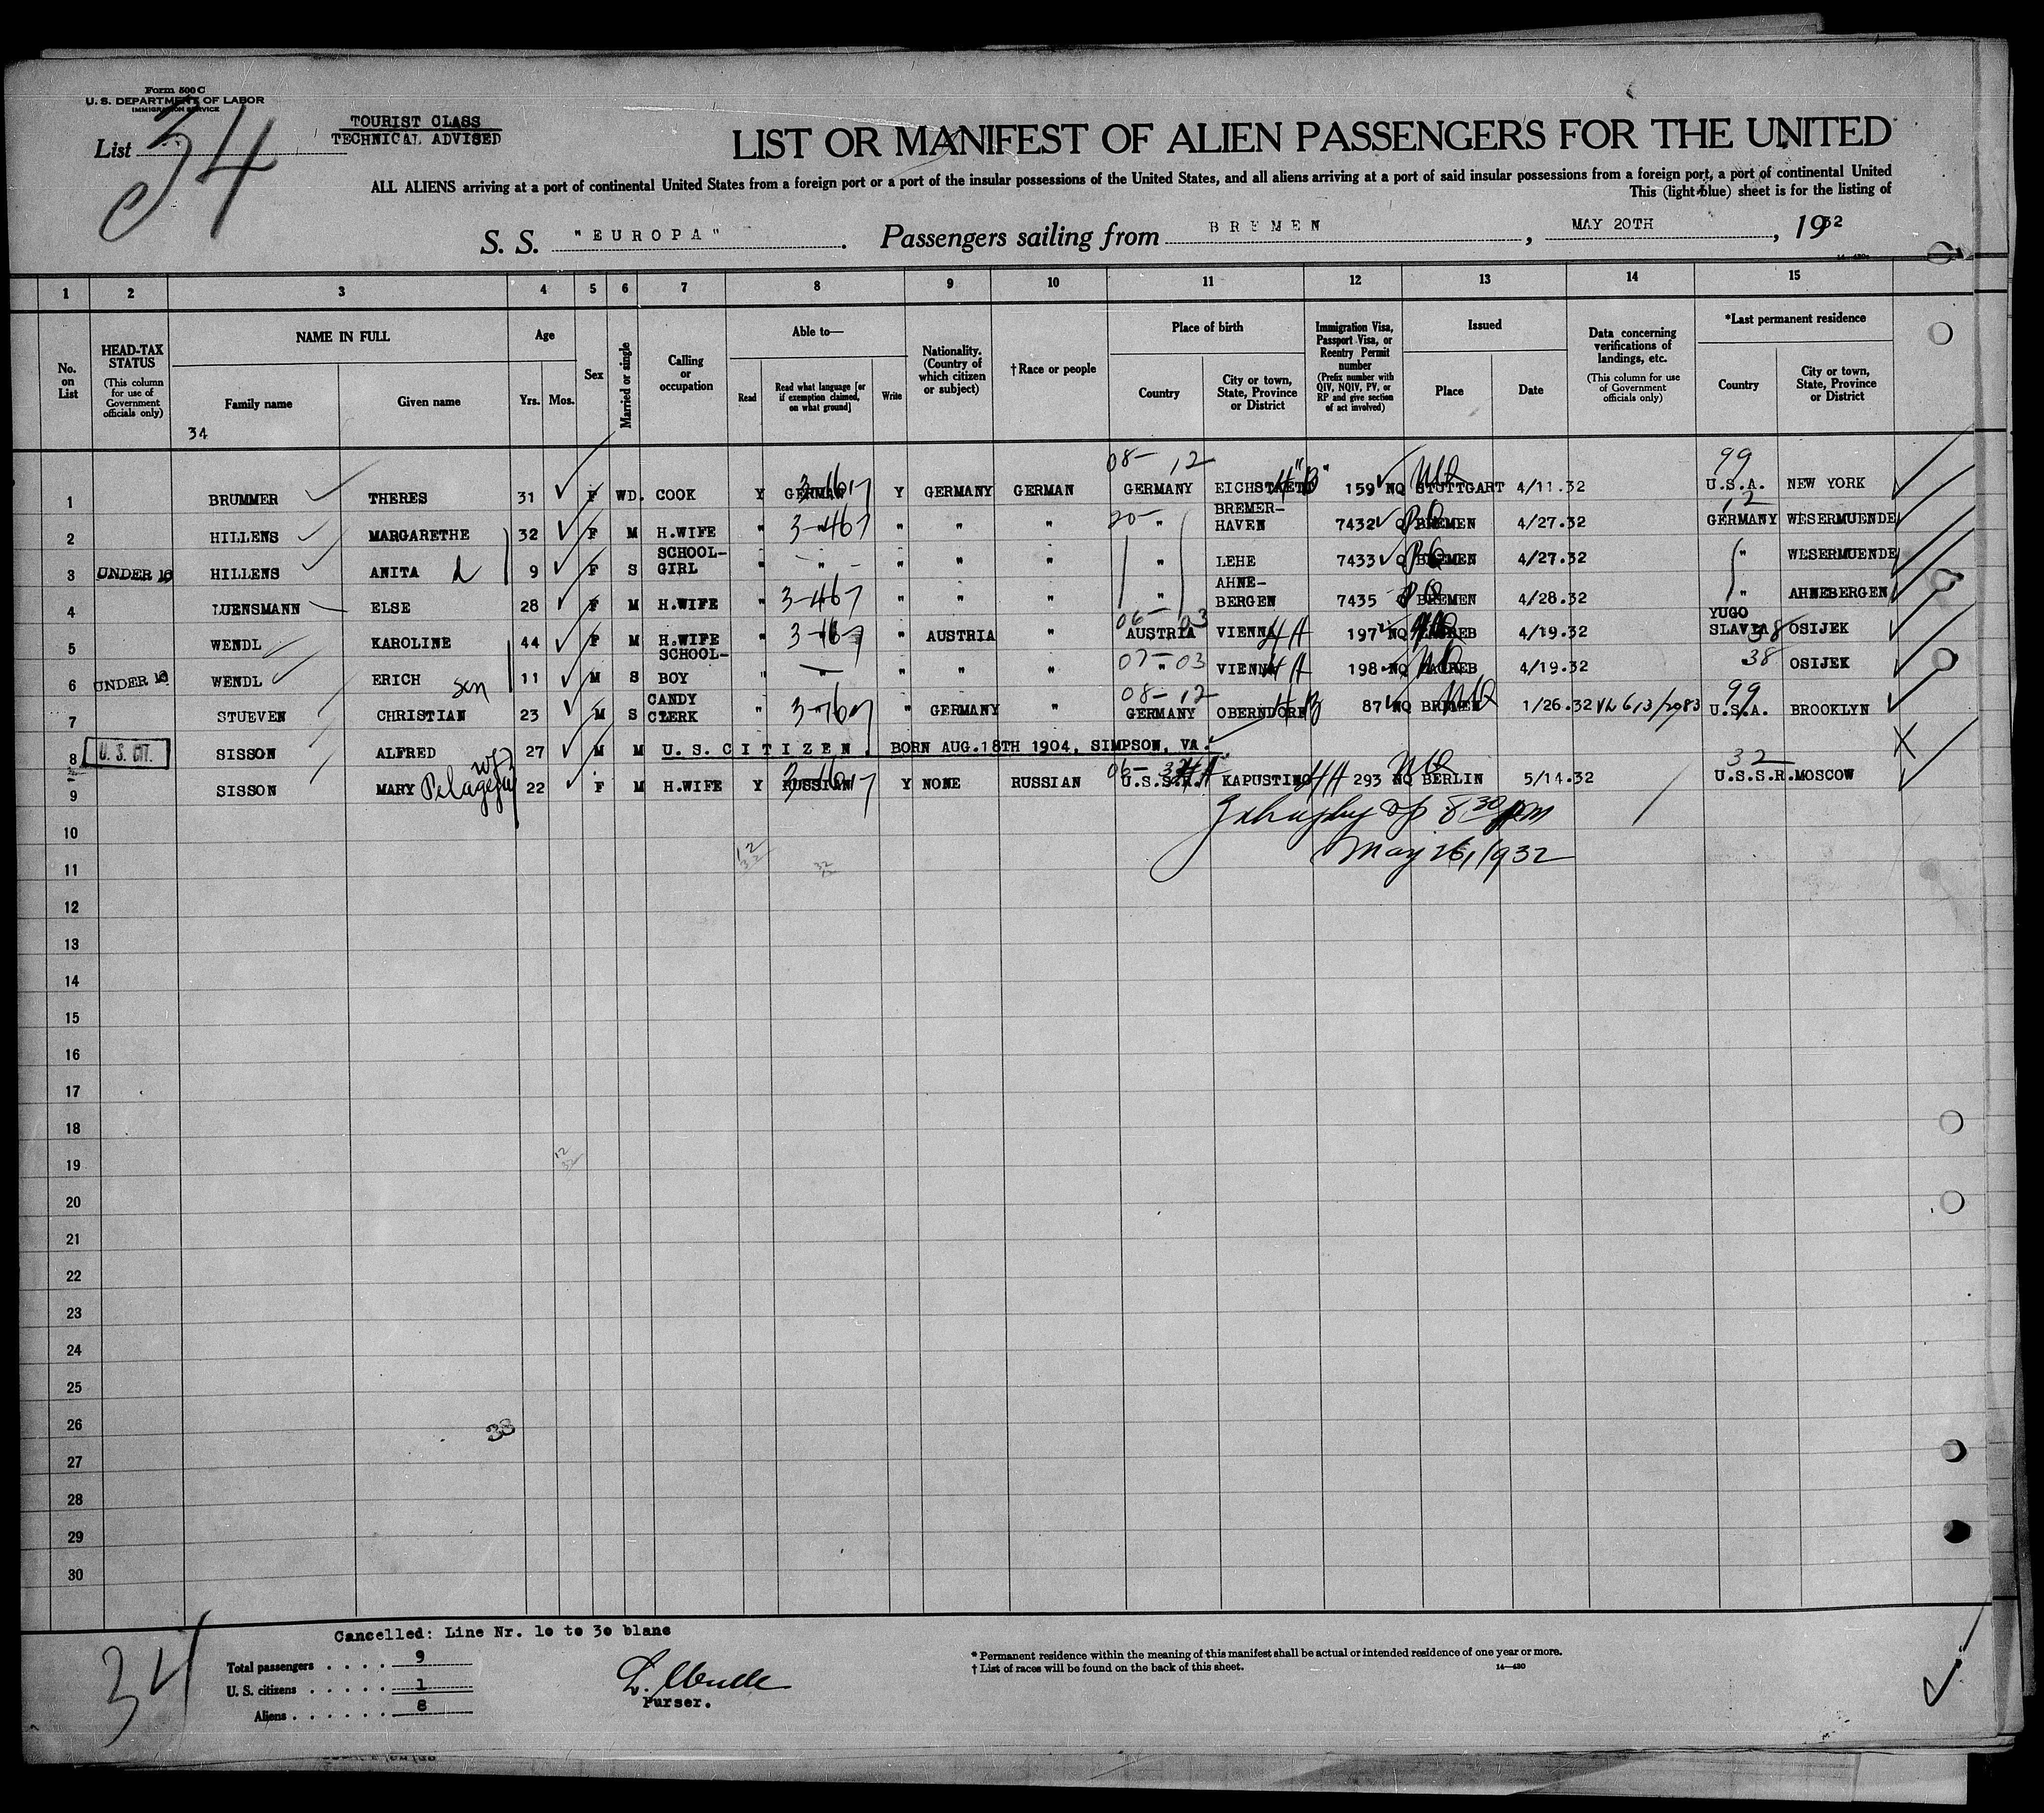 Form 500 C
U. S. DEPARTMENT OF LABOR
IMMIGRATION SERVICE
List 34
TOURIST CLASS
TECHNICAL ADVISED
LIST OR MANIFEST OF ALIEN PASSENGERS FOR THE UNITED
ALL ALIENS arriving at a port of continental United States from a foreign port or a port of the insular possessions of the United States, and all aliens arriving at a port of said insular possessions from a foreign port, a port of continental United
This (light blue) sheet is for the listing of
S. S. "EUROPA". Passengers sailing from BREMEN, MAY 20TH, 1932
1 2 3 4 5 6 7 8 9 10 11 12 13 14 15
No. on List
HEAD-TAX STATUS
(This column for use of Government officials only)
NAME IN FULL
Family name
Given name
Age
Yrs. Mos.
Sex
Married or single
Calling or occupation
Able to—
Read
Read what language [or if exemption claimed, on what ground]
Write
Nationality. (Country of which citizen or subject)
†Race or people
Place of birth
Country
City or town, State, Province or District
Immigration Visa, Passport Visa, or Reentry Permit number
(Prefix number with QIV, NQIV, PV, or RP and give section of act involved)
Issued
Place
Date
Data concerning verifications of landings, etc.
(This column for use of Government officials only)
*Last permanent residence
Country
City or town, State, Province or District
34
08- 12 99
1 BRUMMER THERES 31 F WD. COOK Y GERMAN Y GERMANY GERMAN GERMANY EICHSTAETT 159 NQ STUTTGART 4/11.32 U.S.A. NEW YORK
2 HILLENS MARGARETHE 32 F M H.WIFE " 3-467 " " " " BREMER-HAVEN 7432 Q BREMEN 4/27.32 GERMANY WESERMUENDE
3 UNDER 16 HILLENS ANITA d 9 F S SCHOOL-GIRL " " " " " " LEHE 7433 Q BREMEN 4/27.32 " WESERMUENDE
4 LUENSMANN ELSE 28 F M H.WIFE " 3-467 " " " " AHNE-BERGEN 7435 Q BREMEN 4/28.32 " AHNEBERGEN
5 WENDL KAROLINE 44 F M H.WIFE " " AUSTRIA " AUSTRIA VIENNA 197 NQ ZAGREB 4/19.32 YUGO SLAVIA OSIJEK
6 UNDER 16 WENDL ERICH son 11 M S SCHOOL-BOY " " " " 07- 03 " VIENNA 198 NQ ZAGREB 4/19.32 38 OSIJEK
7 STUEVEN CHRISTIAN 23 M S CANDY CLERK " " GERMANY " 08- 12 GERMANY OBERNDORF 87 NQ BREMEN 1/26.32 VL 613/2083 99 U.S.A. BROOKLYN
8 U. S. CIT. SISSON ALFRED 27 M M U. S. CITIZEN. BORN AUG.18TH 1904, SIMPSON, VA.
9 SISSON MARY wf 22 F M H.WIFE Y RUSSIAN Y NONE RUSSIAN U.S.S.R. KAPUSTINO 293 NQ BERLIN 5/14.32 32 U.S.S.R. MOSCOW
10
May 26, 1932
11
12
13
14
15
16
17
18
19
20
21
22
23
24
25
26
33
27
28
29
30
Cancelled: Line Nr. 10 to 30 blanc
34
Total passengers . . . . 9
U. S. citizens . . . . . 1
Aliens . . . . . . 8
Purser.
* Permanent residence within the meaning of this manifest shall be actual or intended residence of one year or more.
† List of races will be found on the back of this sheet.
14—430